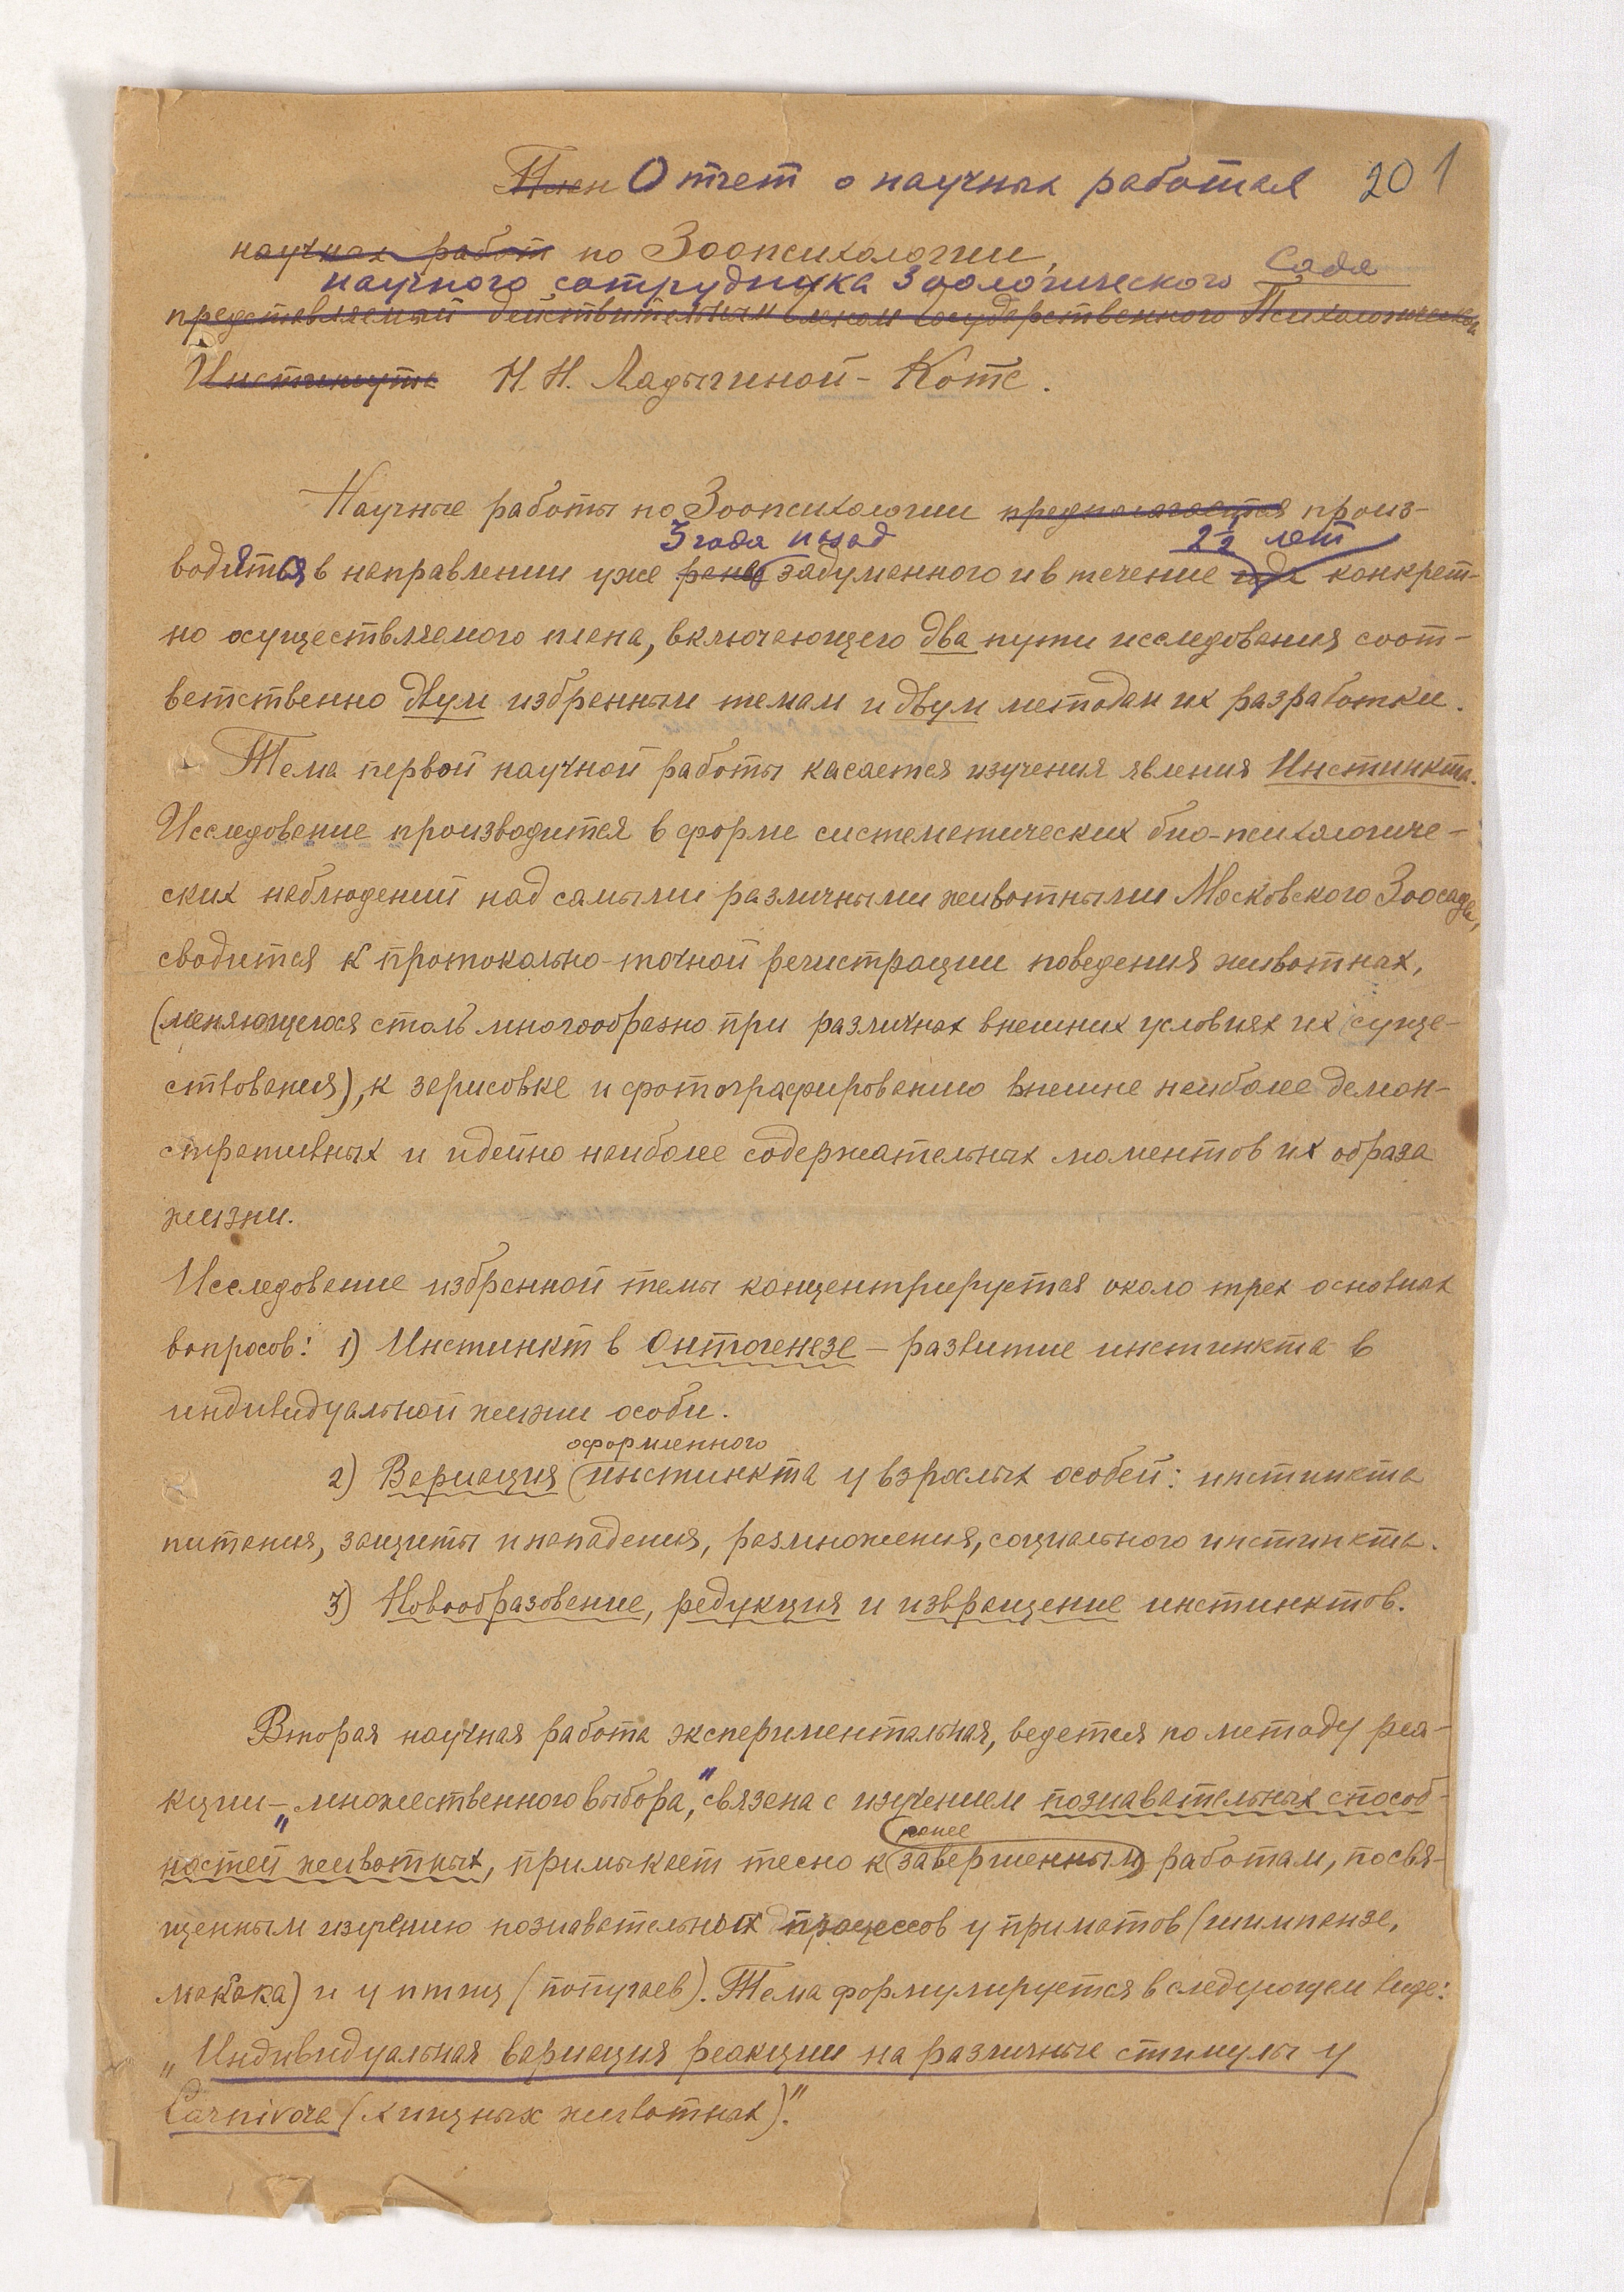 План Отчет о научных работах 201
научных работ по Зоопсихологии,
научного сотрудника Зоологического Сада
представляемый действительным членом Государственного Психологического
Института Н. Н. Ладыгиной-Котс.
Научные работы по Зоопсихологии предполагается произ-
3 года назад 2½ лет
водятся в направлении уже ранее задуманного и в течение года конкрет-
но осуществляемого плана, включающего два пути исследования соот-
ветственно двум избранным темам и двум методам их разработки.
Тема первой научной работы касается изучения явления Инстинкта.
Исследование производится в форме систематических био-психологиче-
ских наблюдений над самыми различными животными Московского Зоосада,
сводится к протокольно-точной регистрации поведения животных,
(меняющегося столь многообразно при различных внешних условиях их суще-
ствования), к зарисовке и фотографированию внешне наиболее демон-
стративных и идейно наиболее содержательных моментов их образа
жизни.
Исследование избранной темы концентрируется около трех основных
вопросов: 1) Инстинкт в Онтогенезе – развитие инстинкта в
индивидуальной жизни особи.
оформленного
2) Вариация (инстинкта у взрослых особей: инстинкта
питания, защиты и нападения, размножения, социального инстинкта.
3) Новообразование, редукция и извращение инстинктов.
Вторая научная работа экспериментальная, ведется по методу реа-
кции – „множественного выбора", связана с изучением познавательных способ-
ранее
ностей животных, примыкает тесно к (завершенным) работам, посвя-
щенным изучению познавательных процессов у приматов (шимпанзе,
макака) и у птиц (попугаев). Тема формулируется в следующем виде:
„Индивидуальная вариация реакции на различные стимулы у
Carnivora (хищных животных)."